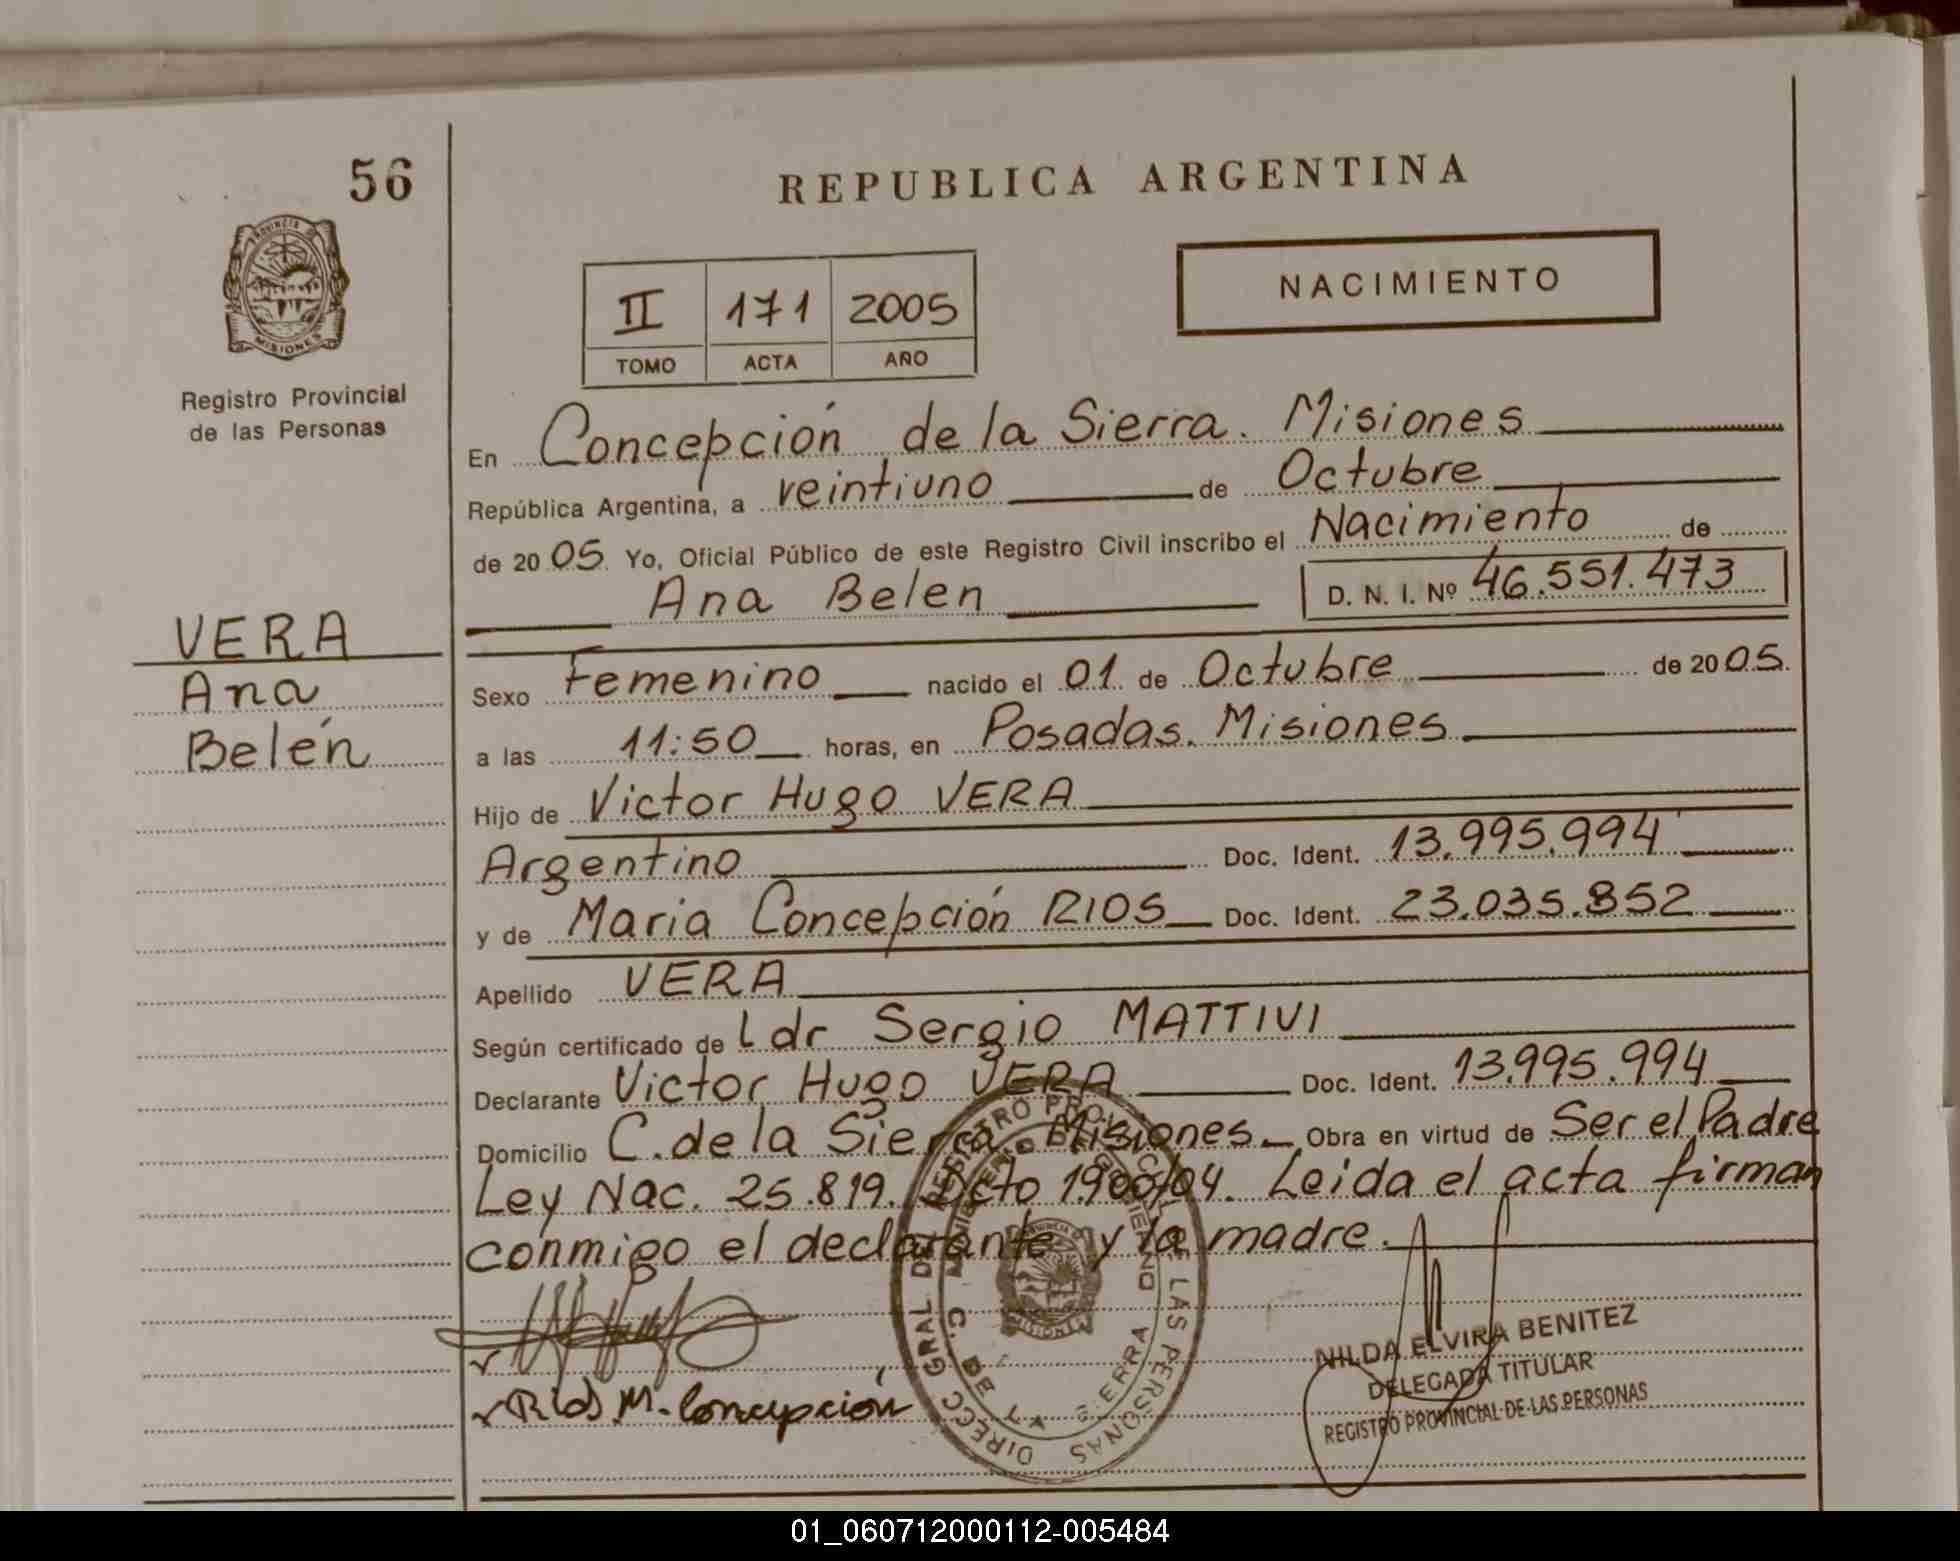 56
REPUBLICA ARGENTINA
PROVINCIA DE
MISIONES
Registro Provincial
de las Personas
II 171 2005
TOMO ACTA AÑO
NACIMIENTO
En Concepción de la Sierra. Misiones
República Argentina, a veintiuno de Octubre
de 2005 Yo, Oficial Público de este Registro Civil inscribo el Nacimiento de
Ana Belen D. N. I. Nº 46.551.473
VERA
Ana
Belén
Sexo Femenino nacido el 01 de Octubre de 2005.
a las 11:50 horas, en Posadas. Misiones
Hijo de Victor Hugo VERA
Argentino Doc. Ident. 13.995.994
y de Maria Concepción RIOS Doc. Ident. 23.035.852
Apellido VERA
Según certificado de Ldr Sergio MATTIVI
Declarante Victor Hugo VERA Doc. Ident. 13.995.994
Domicilio C. de la Sierra Misiones Obra en virtud de Ser el Padre
Ley Nac. 25.819. Dcto 1.900/04. Leida el acta firman
conmigo el declarante y la madre.
Rios M. Concepción
DIRECC GRAL DEL REGISTRO PROVINCIAL DE LAS PERSONAS
MINISTERIO DE GOBIERNO
C. DE LA SIERRA
MISIONES
NILDA ELVIRA BENITEZ
DELEGADA TITULAR
REGISTRO PROVINCIAL DE LAS PERSONAS
01_060712000112-005484